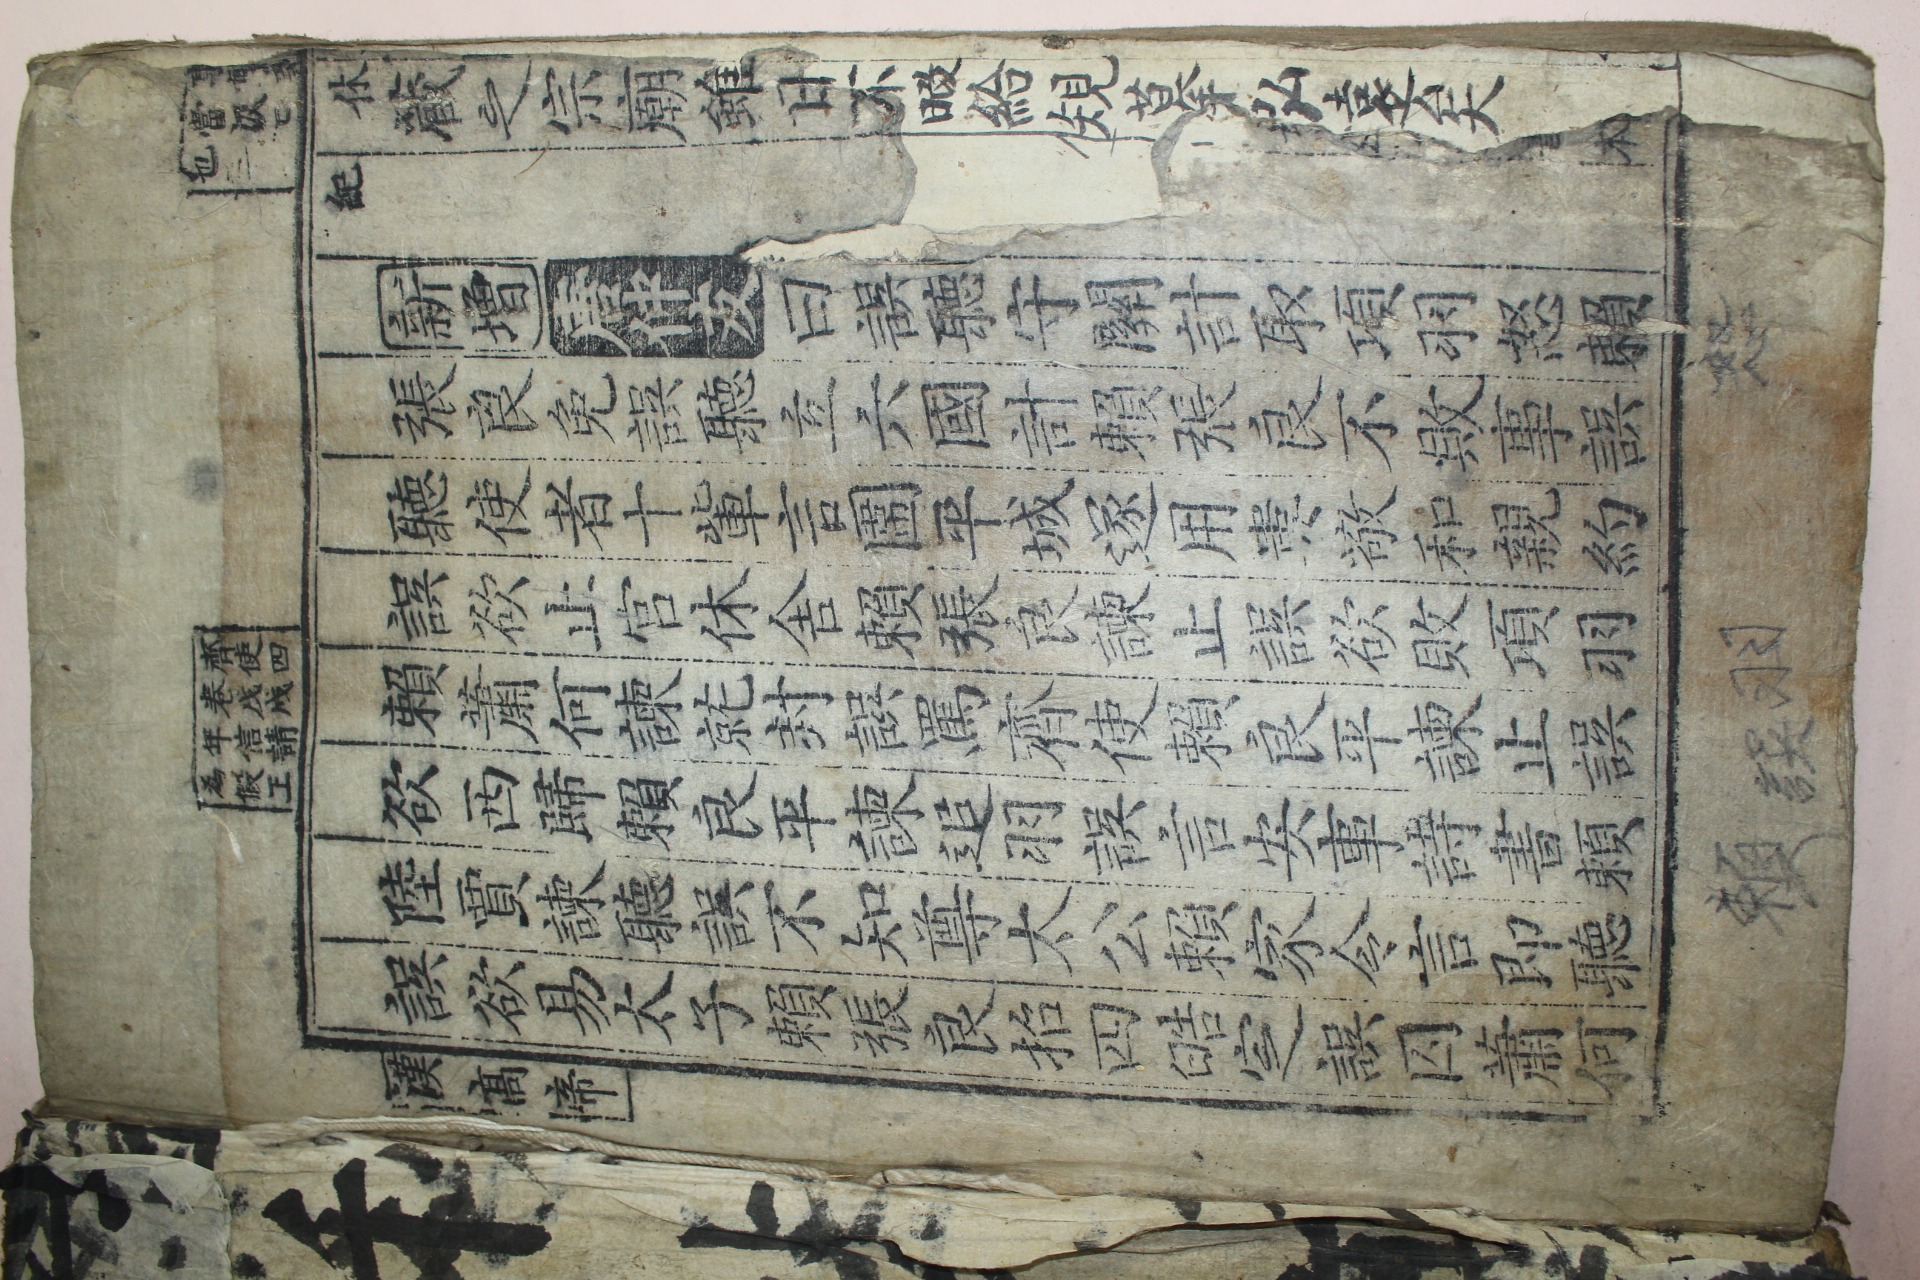 當汲
也三
齊使四
卷戊戌
年信請
為假王
休
藏之宗廟雖日不暇給規摹弘遠矣
紀
本
新增 唐仲友 曰誤聽守關計取項羽怒賴
張良免誤聽立六國計賴張良不敗事誤
聽使者十輩言圍平城遂用婁敬和親約
誤欲止宮休舍賴張良諫止誤欲敗項羽
賴蕭何諫就封誤罵齊使賴良平諫止誤
欲西歸賴良平諫追羽誤言安事詩書賴
陸賈諫聽誤不知尊太公賴家令言即聽
誤欲易太子賴張良招四皓定誤囚蕭何
漢高帝
怒
羽
誤
賴